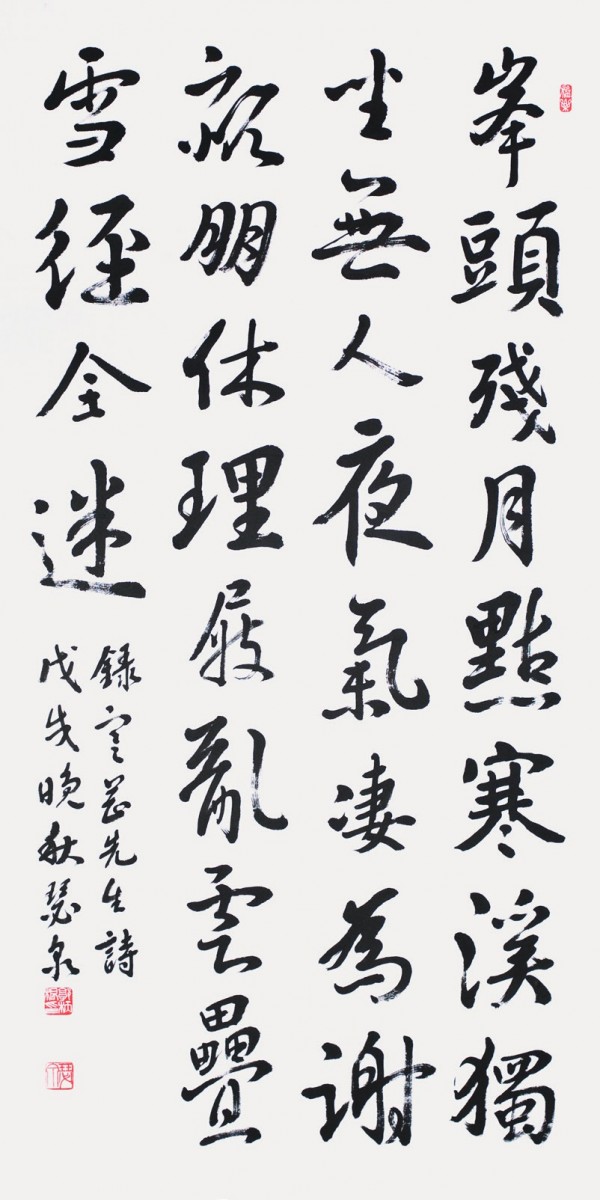 峯頭殘月點寒溪獨
坐無人夜氣凄為謝
親朋休理屐亂雲疊
雪徑全迷
錄先生詩
戊戌晚秋瑟泉